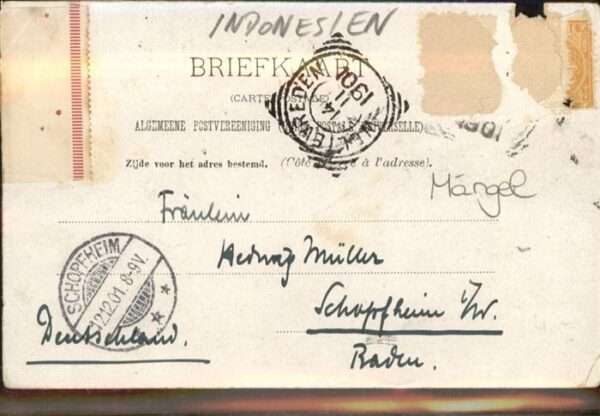 INDONESIEN
BRIEFKAART
(CARTE POSTALE)
ALGEMEENE POSTVEREENIGING
Zijde voor het adres bestemd. (Côté à l'adresse).
WELTEVREDEN
14 11
1901
Mängel
Fräulein
Hedwig Müller
Schopfheim i/W.
Baden.
Deutschland.
SCHOPFHEIM
12.12.01. 8-9V.